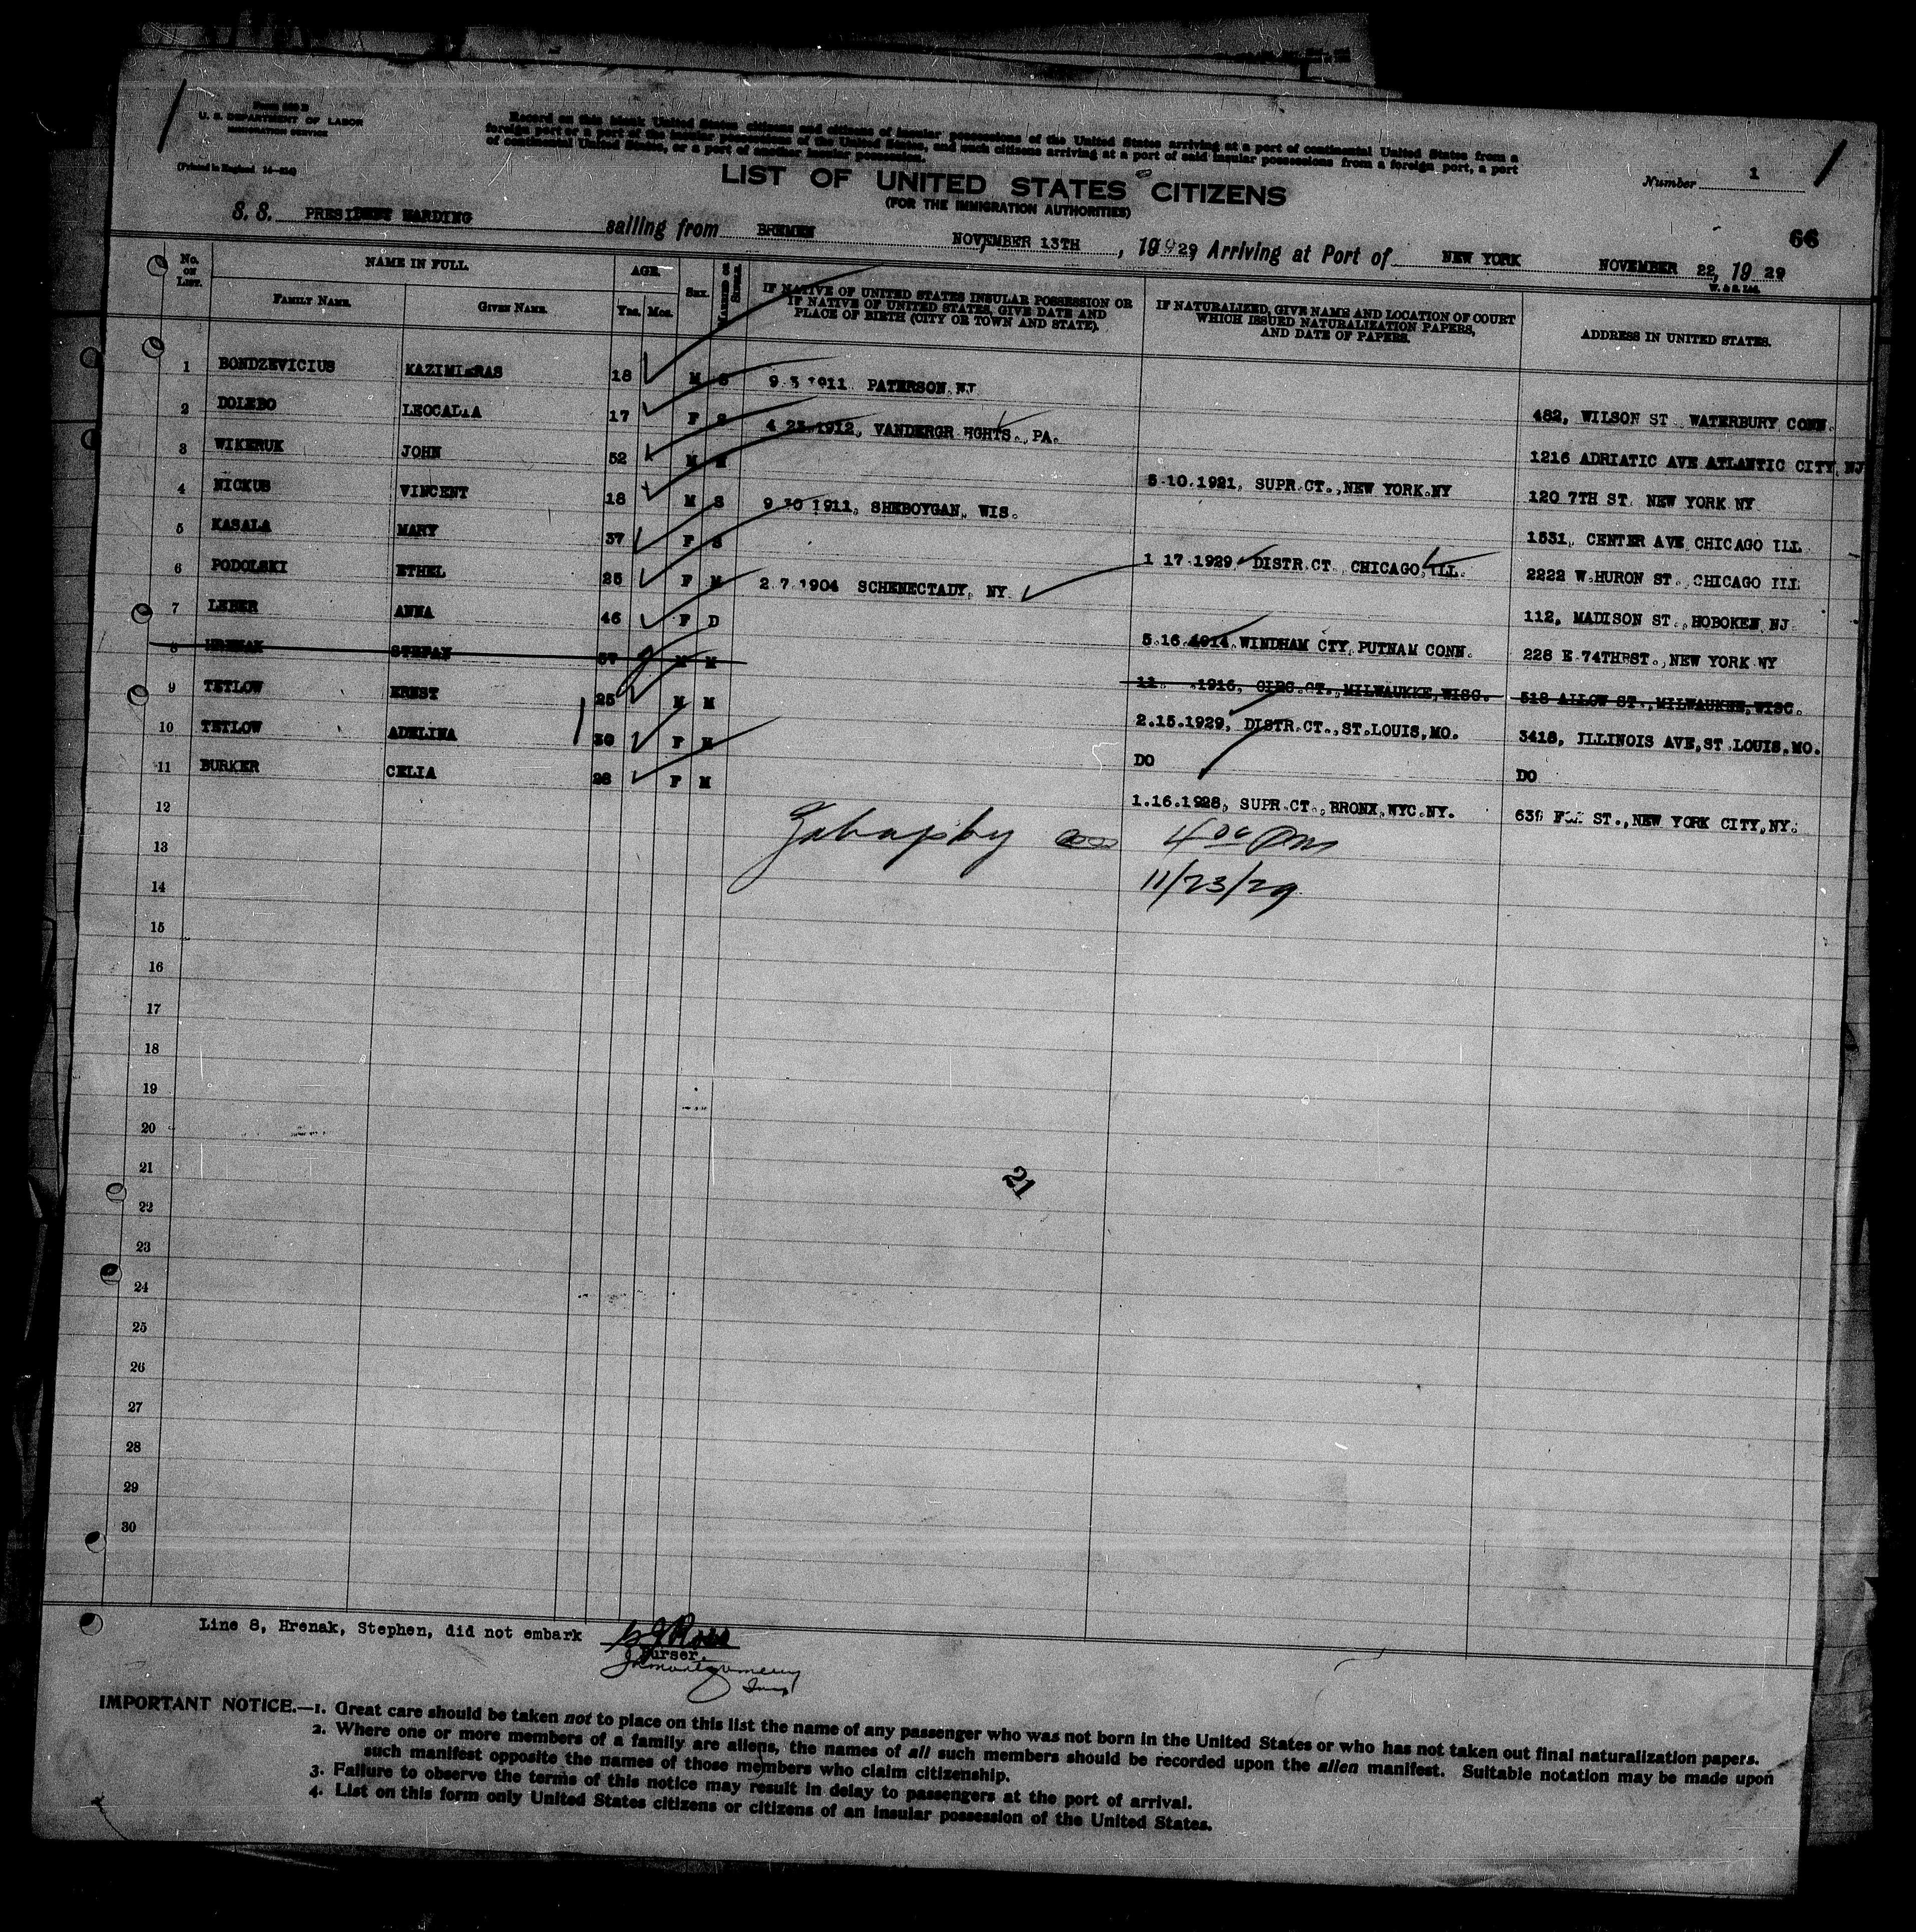 Form 630 B
U. S. DEPARTMENT OF LABOR
IMMIGRATION SERVICE
(Printed in England
Record on this blank United States citizens and citizens of insular possessions of the United States arriving at a port of continental United States from a
foreign port or a part of the insular possessions of the United States, and such citizens arriving at a port of said insular possessions from a foreign port, a port
of continental United States, or a port of another insular possession.
Number 1
LIST OF UNITED STATES CITIZENS
(FOR THE IMMIGRATION AUTHORITIES)
66
S. S. PRESIDENT HARDING sailing from BREMEN NOVEMBER 13TH, 1929, Arriving at Port of NEW YORK NOVEMBER 22, 19 29
W. & S. Ltd.
No. ON LIST. NAME IN FULL. AGE. SEX. MARRIED OR SINGLE. IF NATIVE OF UNITED STATES INSULAR POSSESSION OR IF NATIVE OF UNITED STATES, GIVE DATE AND PLACE OF BIRTH (CITY OR TOWN AND STATE). IF NATURALIZED, GIVE NAME AND LOCATION OF COURT WHICH ISSUED NATURALIZATION PAPERS, AND DATE OF PAPERS. ADDRESS IN UNITED STATES.
FAMILY NAME. GIVEN NAME. Yrs. Mos.
1 BONDZEVICIUS KAZIMIERAS 18 M S 9.3 1911 PATERSON.NJ 482, WILSON ST WATERBURY CONN.
2 DOLEBO LEOCADIA 17 F S 4 23.1912, VANDERGR HGHTS., PA. 1216 ADRIATIC AVE ATLANTIC CITY, NJ
3 WIKERUK JOHN 52 M M 5.10.1921, SUPR.CT., NEW YORK.NY 120 7TH ST. NEW YORK NY
4 NICKUS VINCENT 18 M S 9 30 1911, SHEBOYGAN, WIS. 1531, CENTER AVE CHICAGO ILL
5 KASALA MARY 37 F S 1 17.1929, DISTR.CT. CHICAGO, ILL. 2222 W.HURON ST., CHICAGO ILL
6 PODOLSKI ETHEL 25 F M 2.7.1904 SCHENECTADY, NY 112, MADISON ST., HOBOKEN NJ
7 LEBER ANNA 46 F D 5.16.1914.WINDHAM CTY, PUTNAM CONN. 228 E.74TH ST., NEW YORK NY
8 HRENAK STEFAN 57 M M 11. .1916, CIRC.CT., MILWAUKEE, WISC. 518 ALLOW ST., MILWAUKEE, WISC.
9 TETLOW ERNST 25 M M 2.15.1929, DISTR.CT., ST.LOUIS, MO. 3418, ILLINOIS AVE, ST LOUIS, MO.
10 TETLOW ADELINA 30 F M DO DO
11 BURKER CELIA 28 F M 1.16.1928, SUPR.CT., BRONX, NYC.NY. 639 FOX ST., NEW YORK CITY, NY.
12
13 4 00 pm
14 11/23/29
15
16
17
18
19
20
21
21
22
23
24
25
26
27
28
29
30
Line 8, Hrenak, Stephen, did not embark
Ross
Purser.
Montgomery
Insp
IMPORTANT NOTICE.—1. Great care should be taken not to place on this list the name of any passenger who was not born in the United States or who has not taken out final naturalization papers.
2. Where one or more members of a family are aliens, the names of all such members should be recorded upon the alien manifest. Suitable notation may be made upon
such manifest opposite the names of those members who claim citizenship.
3. Failure to observe the terms of this notice may result in delay to passengers at the port of arrival.
4. List on this form only United States citizens or citizens of an insular possession of the United States.